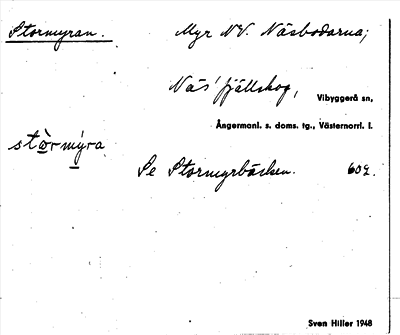 Stormyran. Myr NV. Näsbodarna;
Näs' fjällskog, Vibyggerå sn,
Ångermanl. s. doms. tg., Västernorrl. l.
stòrmýra
Se Stormyrbäcken. 602.
Sven Hiller 1948